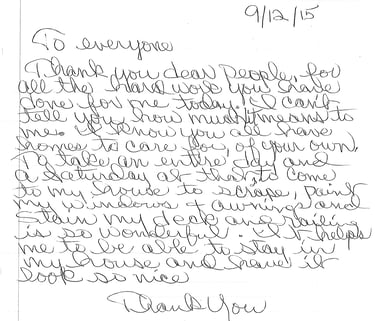 9/12/15
To everyone
Thank you dear people, for
all the hard work you have
done for me today. I can't
tell you how much it means to
me. I know you all have
homes to care for, of your own.
To take an entire day and
a Saturday at that, to come
to my house to scrape, paint
my windows & awnings and
stain my deck and railing
is so wonderful. It helps
me to be able to stay in
my house and have it
look so nice
Thank You